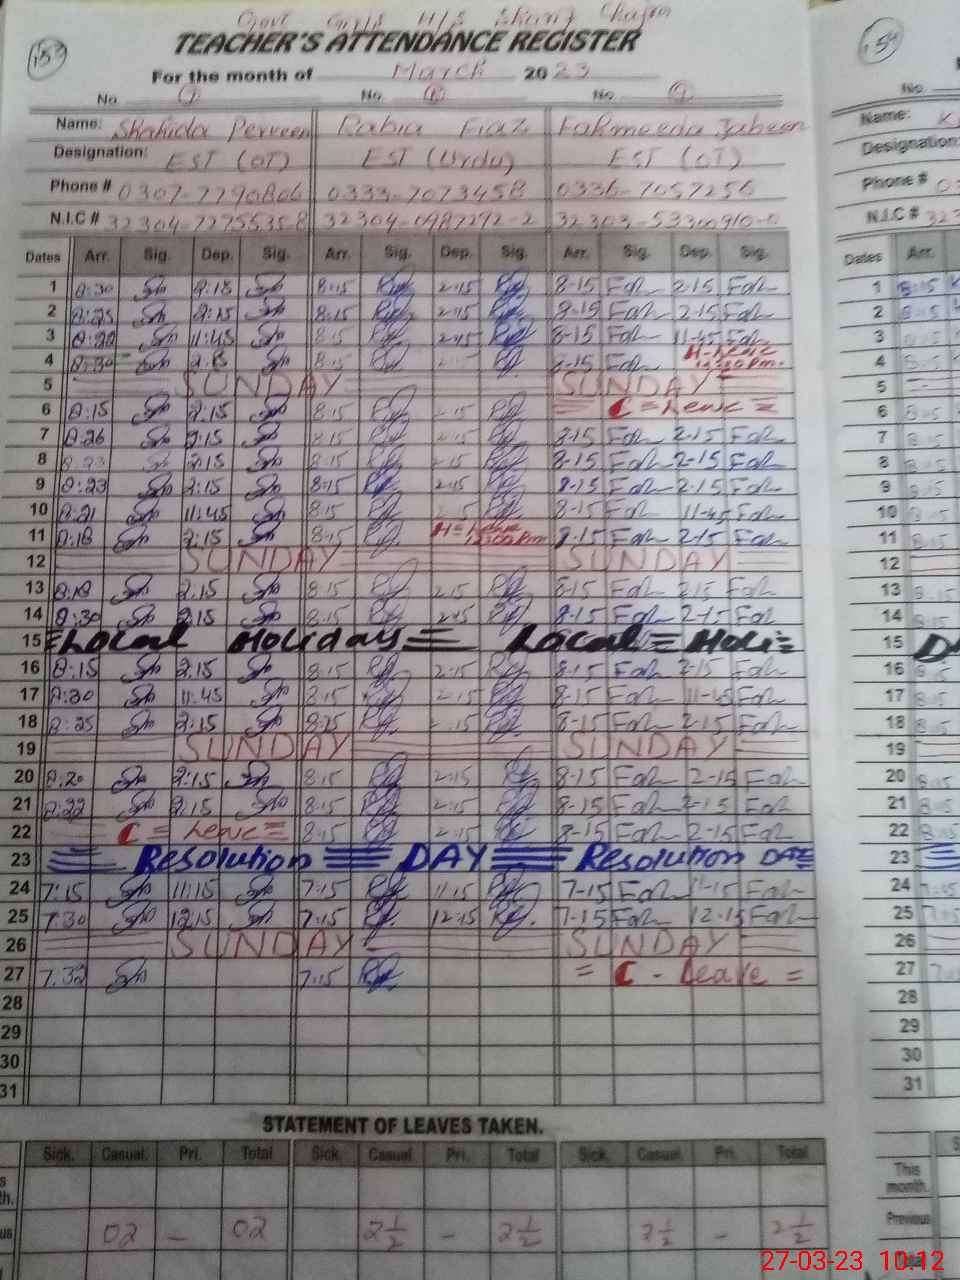 Govt Girls H/S
153
TEACHER'S ATTENDANCE REGISTER
154
For the month of March 2023
No. No. No. No.
Name: Shahida Perveen Rabia Fiaz Fahmeeda Jabeen Name:
Designation: EST (OT) EST (Urdu) EST (OT) Designation:
Phone # 0307-7790806 0333-7073458 0336-7057256 Phone #
N.I.C # 32304-7275535-8 32304-0987292-2 32303-5330910-0 N.I.C # 323
Dates Arr. Sig. Dep. Sig. Arr. Sig. Dep. Sig. Arr. Sig. Dep. Sig. Dates Arr.
1 8:30 2:15 8:15 2:15 8-15 Fah 2-15 Fah 1 8:15
2 8:25 2:15 8:15 2:15 8-15 Fah 2-15 Fah 2 8:15
3 8:20 11:45 8:15 2:15 8-15 Fah 11-45 Fah 3 8:15
4 8:30 2:15 8:15 2:15 8-15 Fah H-Leave 12:30 Pm. 4 8:15
5 SUNDAY SUNDAY 5
6 8:15 2:15 8:15 2:15 C = Leave = 6 8:15
7 8:26 2:15 8:15 2:15 8-15 Fah 2-15 Fah 7 8:15
8 8:23 2:15 8:15 2:15 8-15 Fah 2-15 Fah 8 8:15
9 8:23 2:15 8:15 2:15 8-15 Fah 2-15 Fah 9 8:15
10 8:21 11:45 8:15 8-15 Fah 11-45 Fah 10 8:15
11 8:18 2:15 8:15 H=Leave 12:00 Pm 8-15 Fah 2-15 Fah 11 8:15
12 SUNDAY SUNDAY 12
13 8:18 2:15 8:15 2:15 8-15 Fah 2-15 Fah 13 8:15
14 8:30 2:15 8:15 2:15 8-15 Fah 2-15 Fah 14 8:15
15 =Local Holiday= Local = Holi= 15
16 8:15 2:15 8:15 2:15 8-15 Fah 2-15 Fah 16 8:15
17 8:20 11:45 8:15 8-15 Fah 11-45 Fah 17 8:15
18 8:25 2:15 8:25 2:15 8-15 Fah 2-15 Fah 18 8:15
19 SUNDAY SUNDAY 19
20 8:20 2:15 8:15 2:15 8-15 Fah 2-15 Fah 20 8:15
21 8:22 2:15 8:15 2:15 8-15 Fah 2-15 Fah 21 8:15
22 C = Leave = 8:15 2:15 8-15 Fah 2-15 Fah 22 8:15
23 Resolution DAY Resolution DAY 23
24 7:15 11:15 7:15 11:15 7-15 Fah 11-15 Fah 24 7:15
25 7:30 12:15 7:15 12:15 7-15 Fah 12-15 Fah 25 7:15
26 SUNDAY SUNDAY 26
27 7:32 7:15 = C - Leave = 27
28 28
29 29
30 30
31 31
STATEMENT OF LEAVES TAKEN.
Sick. Casual. Pri. Total Sick. Casual. Pri. Total Sick. Casual. Pri. Total
This month.
02 - 02 2½ - 2½ 2½ - 2½ Previous
Total
27-03-23 10:12